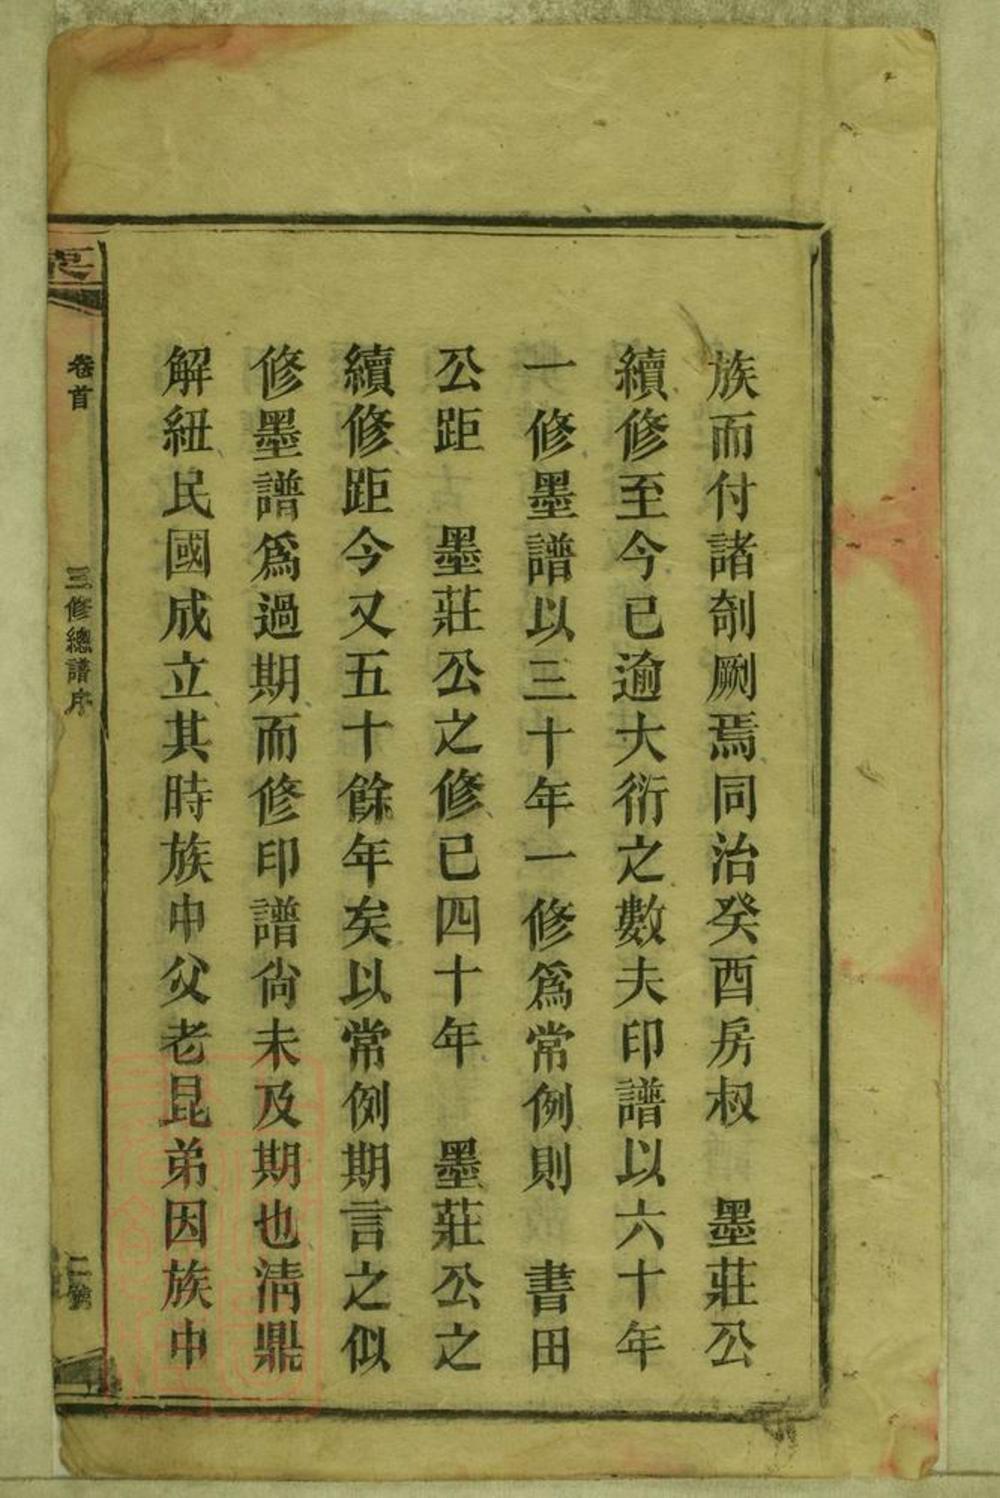 族而付諸剞劂焉同治癸酉房叔　墨莊公
續修至今已逾大衍之數夫印譜以六十年
一修墨譜以三十年一修爲常例則　書田
公距　墨莊公之修已四十年　墨莊公之
續修距今又五十餘年矣以常例期言之似
修墨譜爲過期而修印譜尙未及期也淸鼎
解紐民國成立其時族中父老昆弟因族中
卷首
三修總譜序
二號